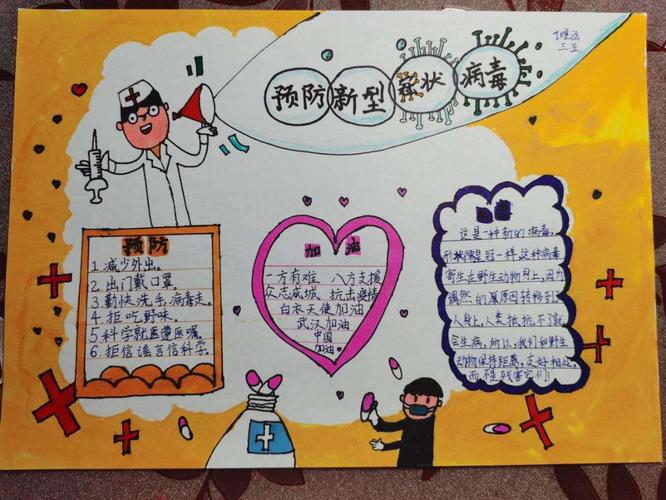 三五
预防新型冠状病毒
预防
1.减少外出。
2.出门戴口罩。
3.勤快洗手,病毒走。
4.拒吃野味。
5.科学就医遵医嘱。
6.拒信谣言信科学。
加油
一方有难 八方支援
众志成城 抗击疫情
白衣天使加油
武汉加油
中国
加油。
这是一种新的病毒。
形状像是冠一样这种病毒
寄生在野生动物身上,因为
偶然的原因转移到
人身上,人类抵抗不
会生病,所以,我们和野生
动物保持距离,友好相处,
而不是残害它们